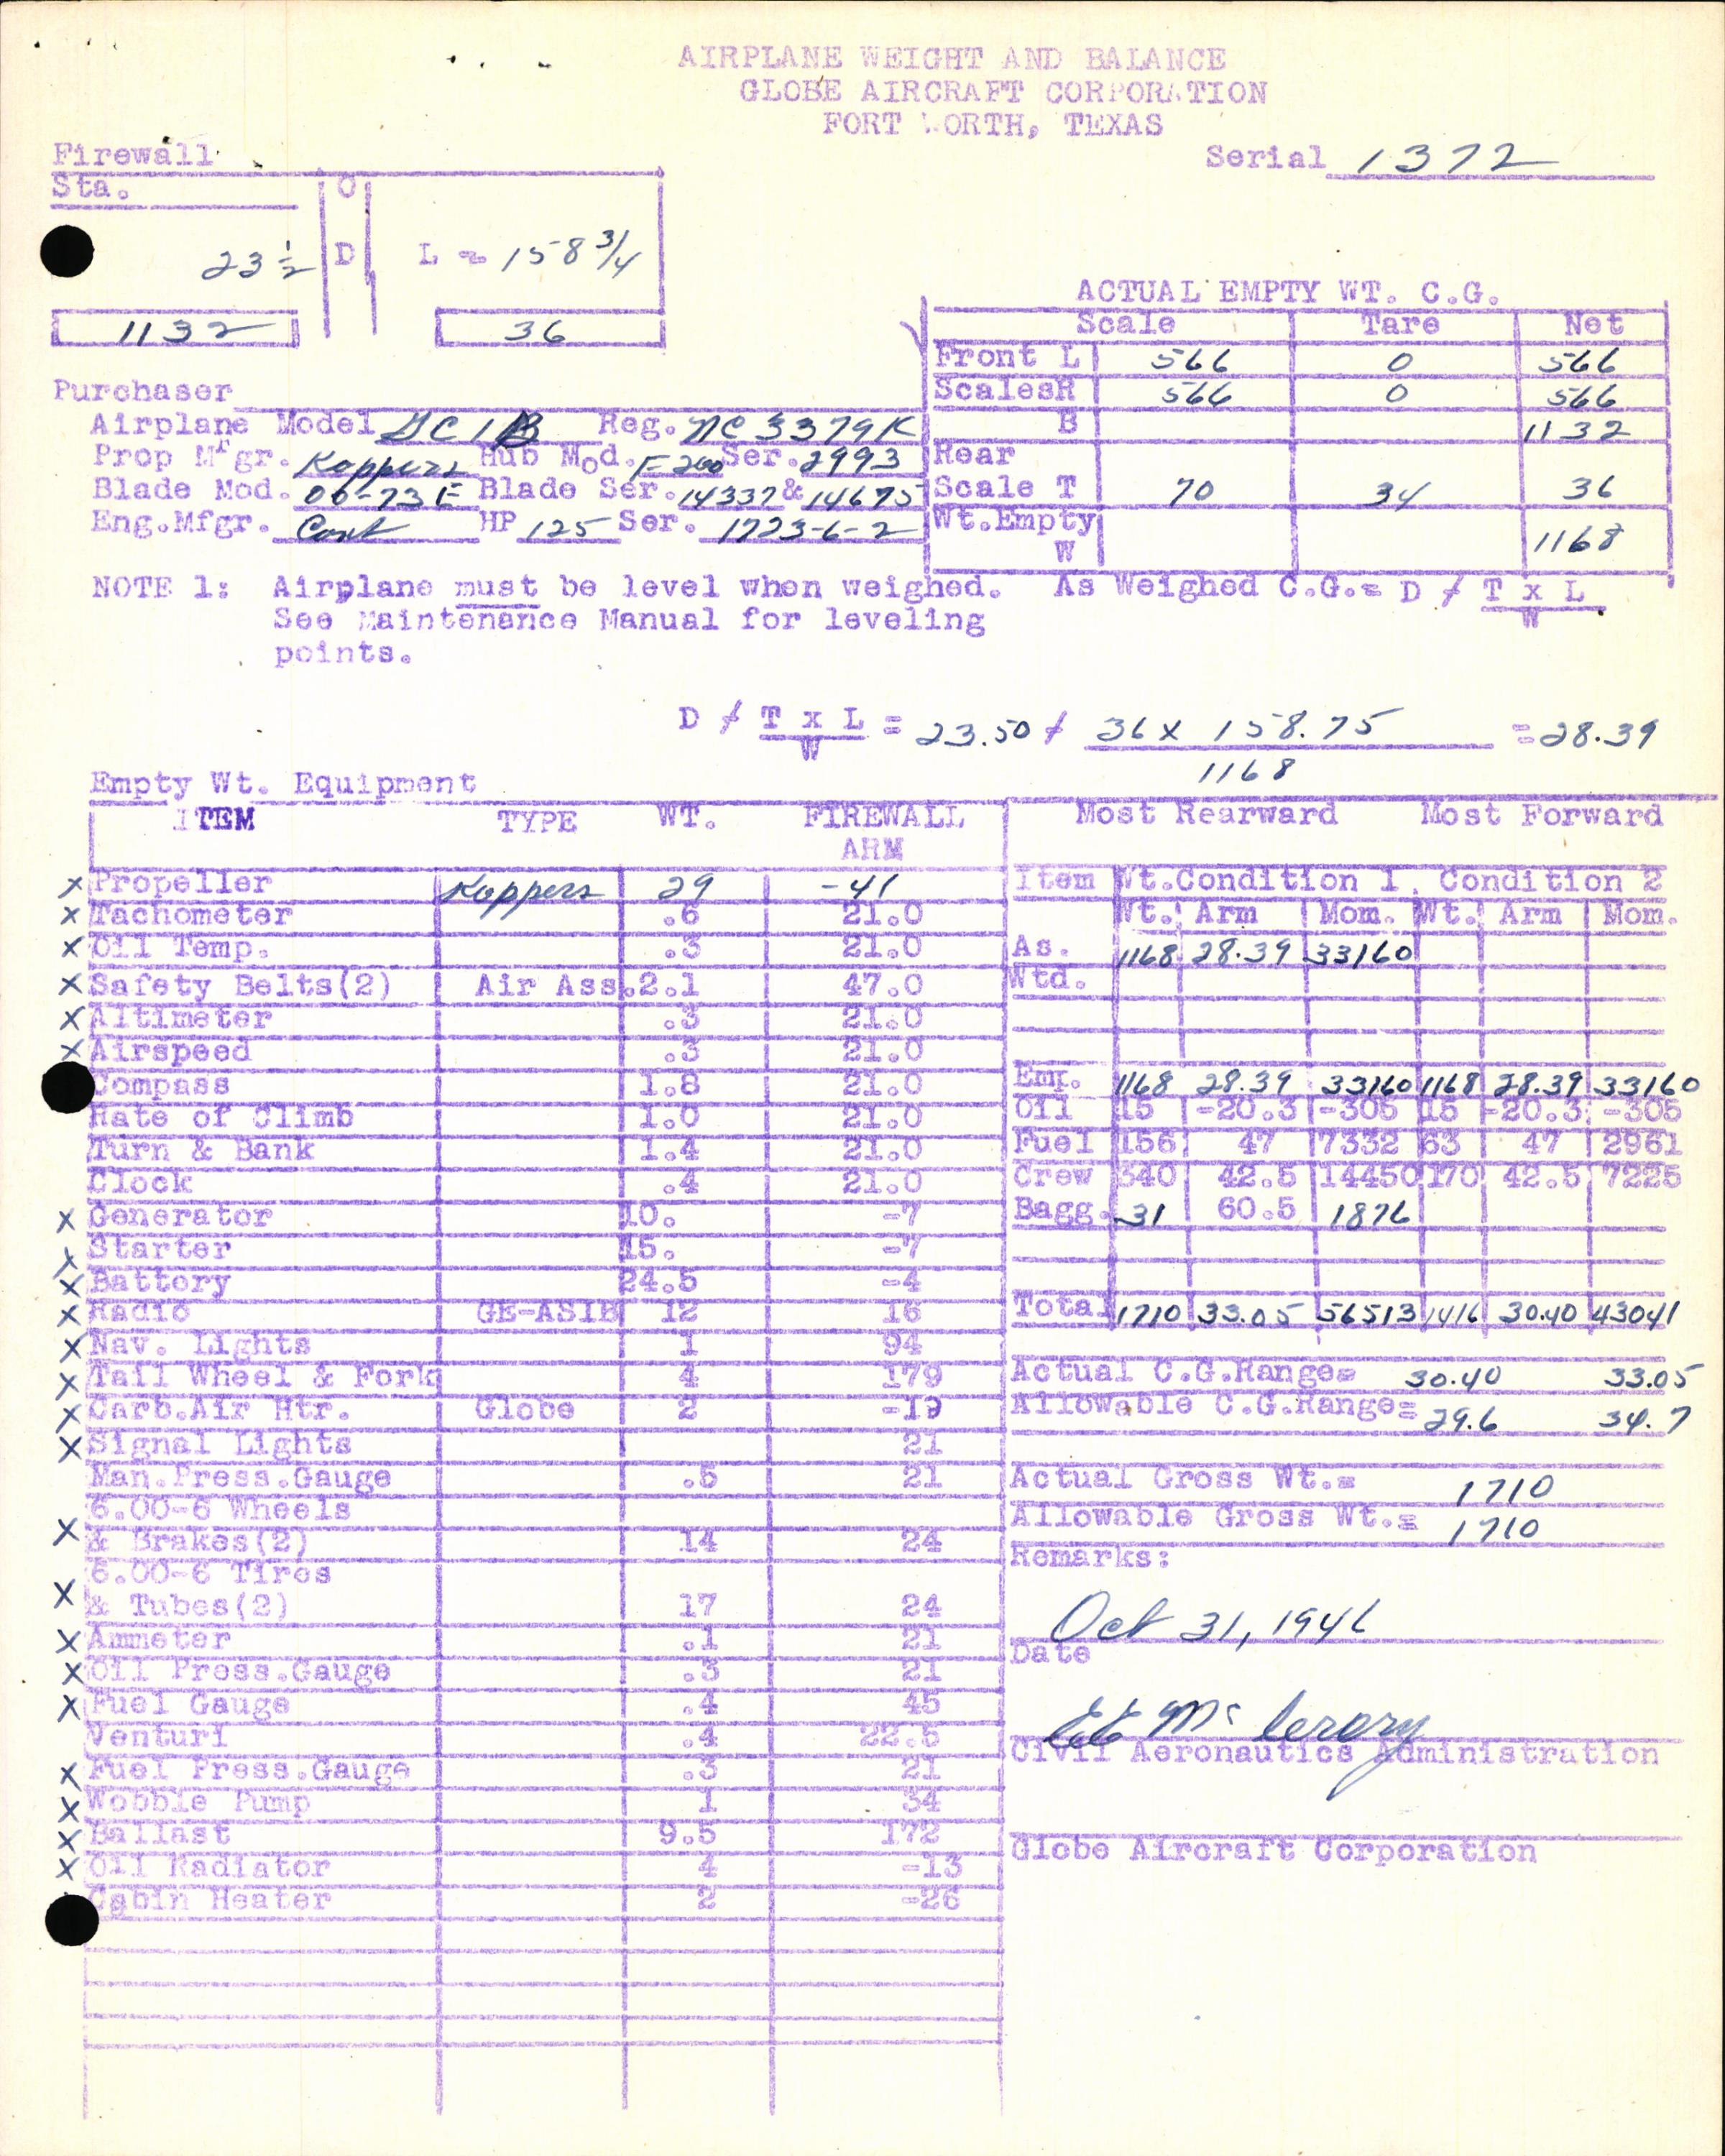 AIRPLANE WEIGHT AND BALANCE
GLOBE AIRCRAFT CORPORATION
FORT WORTH, TEXAS
Serial 1372
Firewall
Sta. O
23 1/2 D L = 158 3/4
1132 36
ACTUAL EMPTY WT. C.G.
Scale Tare Net
Front L 566 0 566
Scales R 566 0 566
B 1132
Rear
Scale T 70 34 36
Wt. Empty
W 1168
Purchaser
Airplane Model GC1B Reg. NC 3379K
Prop Mfgr. Koppers Hub Mod. F200 Ser. 2993
Blade Mod. 00-73E Blade Ser. 14337 & 14675
Eng. Mfgr. Cont HP 125 Ser. 1723-6-2
NOTE 1: Airplane must be level when weighed.
See Maintenance Manual for leveling
points.
As Weighed C.G.= D / T x L
W
D / T x L = 23.50 / 36 x 158.75 = 28.39
W 1168
Empty Wt. Equipment
ITEM TYPE WT. FIREWALL
ARM
x Propeller Koppers 29 -41
x Tachometer .6 21.0
x Oil Temp. .3 21.0
x Safety Belts(2) Air Ass. 2.1 47.0
x Altimeter .3 21.0
x Airspeed .3 21.0
Compass 1.8 21.0
Rate of Climb 1.0 21.0
Turn & Bank 1.4 21.0
Clock .4 21.0
x Generator 10. -7
x Starter 15. -7
x Battery 24.5 -4
x Radio GE-AS1B 12 16
x Nav. Lights 1 94
x Tail Wheel & Fork 4 179
x Carb.Air Htr. Globe 2 -19
x Signal Lights 21
Man.Press.Gauge .5 21
6.00-6 Wheels
x & Brakes(2) 14 24
6.00-6 Tires
x & Tubes(2) 17 24
x Ammeter .1 21
x Oil Press.Gauge .3 21
x Fuel Gauge .4 45
Venturi .4 22.5
x Fuel Press.Gauge .3 21
x Wobble Pump 1 34
x Ballast 9.5 172
x Oil Radiator 4 -13
Cabin Heater 2 -26
Most Rearward Most Forward
Item Wt.Condition 1. Condition 2
Wt. Arm Mom. Wt. Arm Mom.
As. 1168 28.39 33160
Wtd.
Emp. 1168 28.39 33160 1168 28.39 33160
Oil 15 -20.3 -305 15 -20.3 -305
Fuel 156 47 7332 63 47 2961
Crew 340 42.5 14450 170 42.5 7225
Bagg. 31 60.5 1876
Total 1710 33.05 56513 1416 30.40 43041
Actual C.G.Range= 30.40 33.05
Allowable C.G.Range= 29.6 34.7
Actual Gross Wt.= 1710
Allowable Gross Wt.= 1710
Remarks:
Oct 31, 1946
Date
Civil Aeronautics Administration
Globe Aircraft Corporation